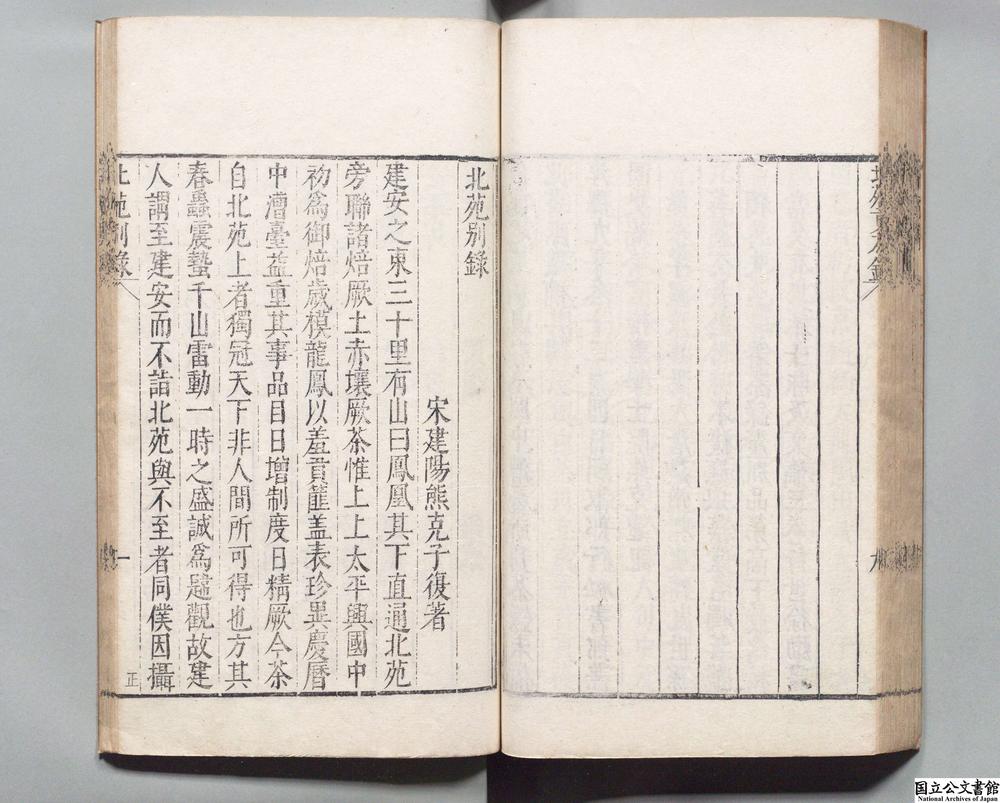 北苑別錄
宋建陽熊克子復著
建安之東三十里有山曰鳳凰其下直通北苑
旁聯諸焙厥土赤壤厥茶惟上上太平興國中
初爲御焙歲模龍鳳以羞貢篚盖表珍異慶曆
中漕臺益重其事品目日增制度日精厥今茶
自北苑上者獨冠天下非人間所可得也方其
春蟲震蟄千山雷動一時之盛誠爲觀故建
人謂至建安而不詣北苑與不至者同僕因攝
北苑別錄
一
正
国立公文書館
National Archives of Japan